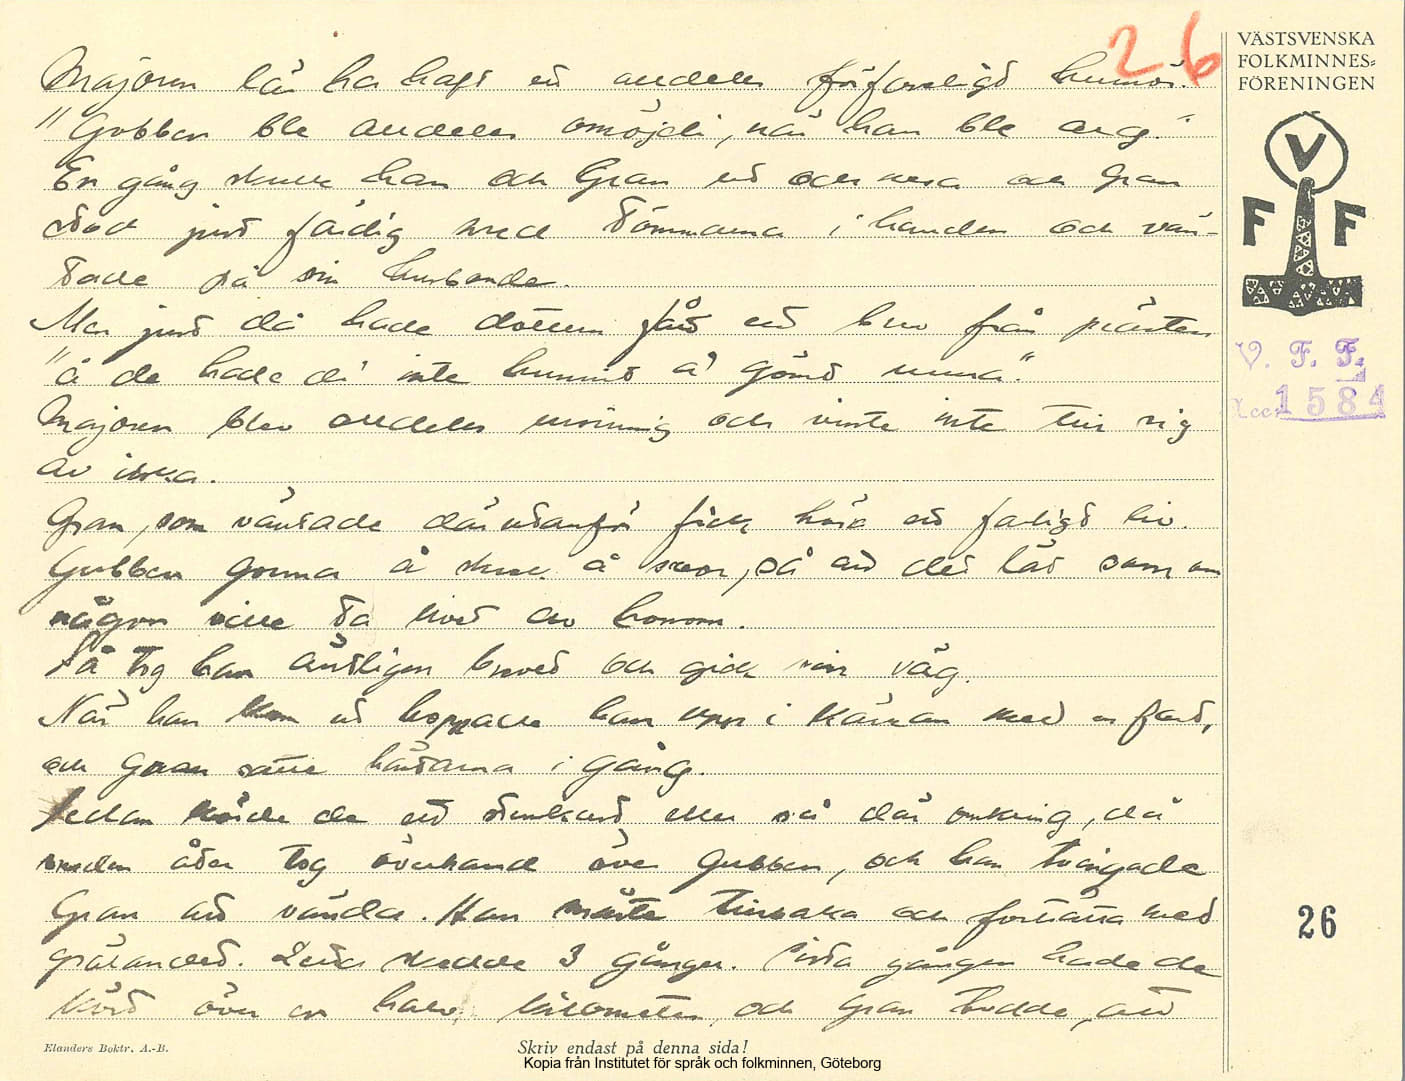 26
VÄSTSVENSKA
FOLKMINNES=
FÖRENINGEN
V
F F
V. F. F.
Acc. 1584
Majoren lär ha haft ett alldeles förfärligt humör.
"Gubben ble alldeles omöjli, när han ble arg."
En gång skulle han och Gran ut och resa och Gran
stod just färdig med tömmarna i handen och vän-
tade på sin husbonde.
Men just då hade dottern fått ett brev från prästen
"å de hade di inte kunnit å' gömt unna."
Majoren blev alldeles ursinnig och visste inte till sig
av ilska.
Gran, som väntade där utanför fick höra ett farligt liv.
Gubben gorma å skrek å svor, så att det lät som om
någon ville ta livet av honom.
Så tog han äntligen brevet och gick sin väg.
När han kom ut hoppade han upp i kärran med en fart,
och Gran satte hästarna i gång.
Sedan körde de ett stenkast eller så där omkring, då
vreden åter tog överhand över Gubben, och han tvingade
Gran att vända. Han måste tillbaka och fortsätta med
grälandet. Detta skedde 3 gånger. Sista gången hade de
kört över en halv kilometer, och Gran trodde, att
26
Elanders Boktr. A.-B.
Skriv endast på denna sida!
Kopia från Institutet för språk och folkminnen, Göteborg